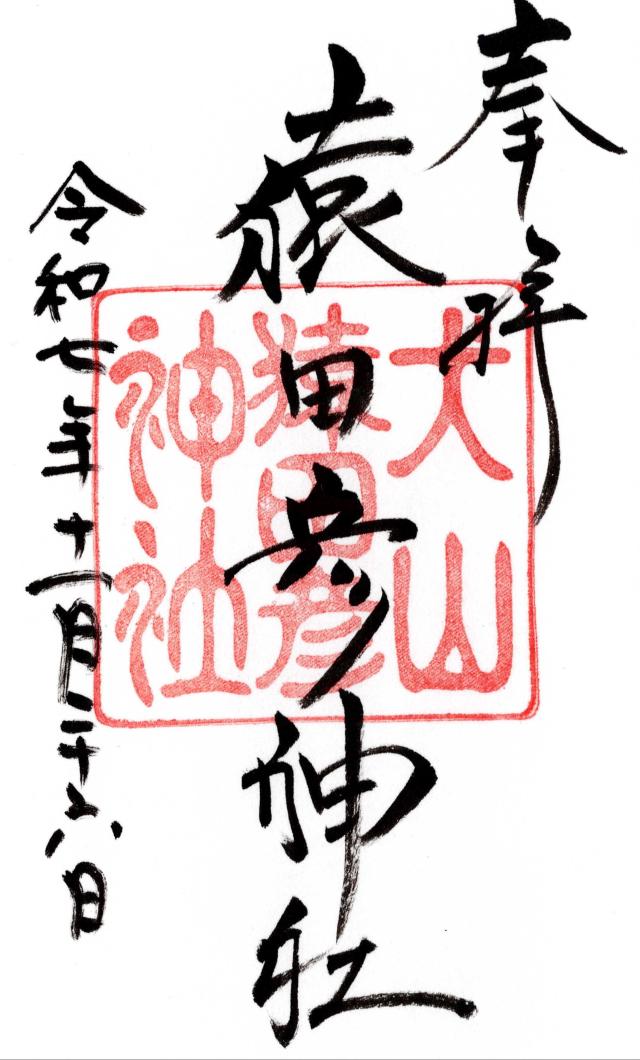 奉拝
猿田彦神社
犬山
猿田彦
神社
令和七年十一月二十六日